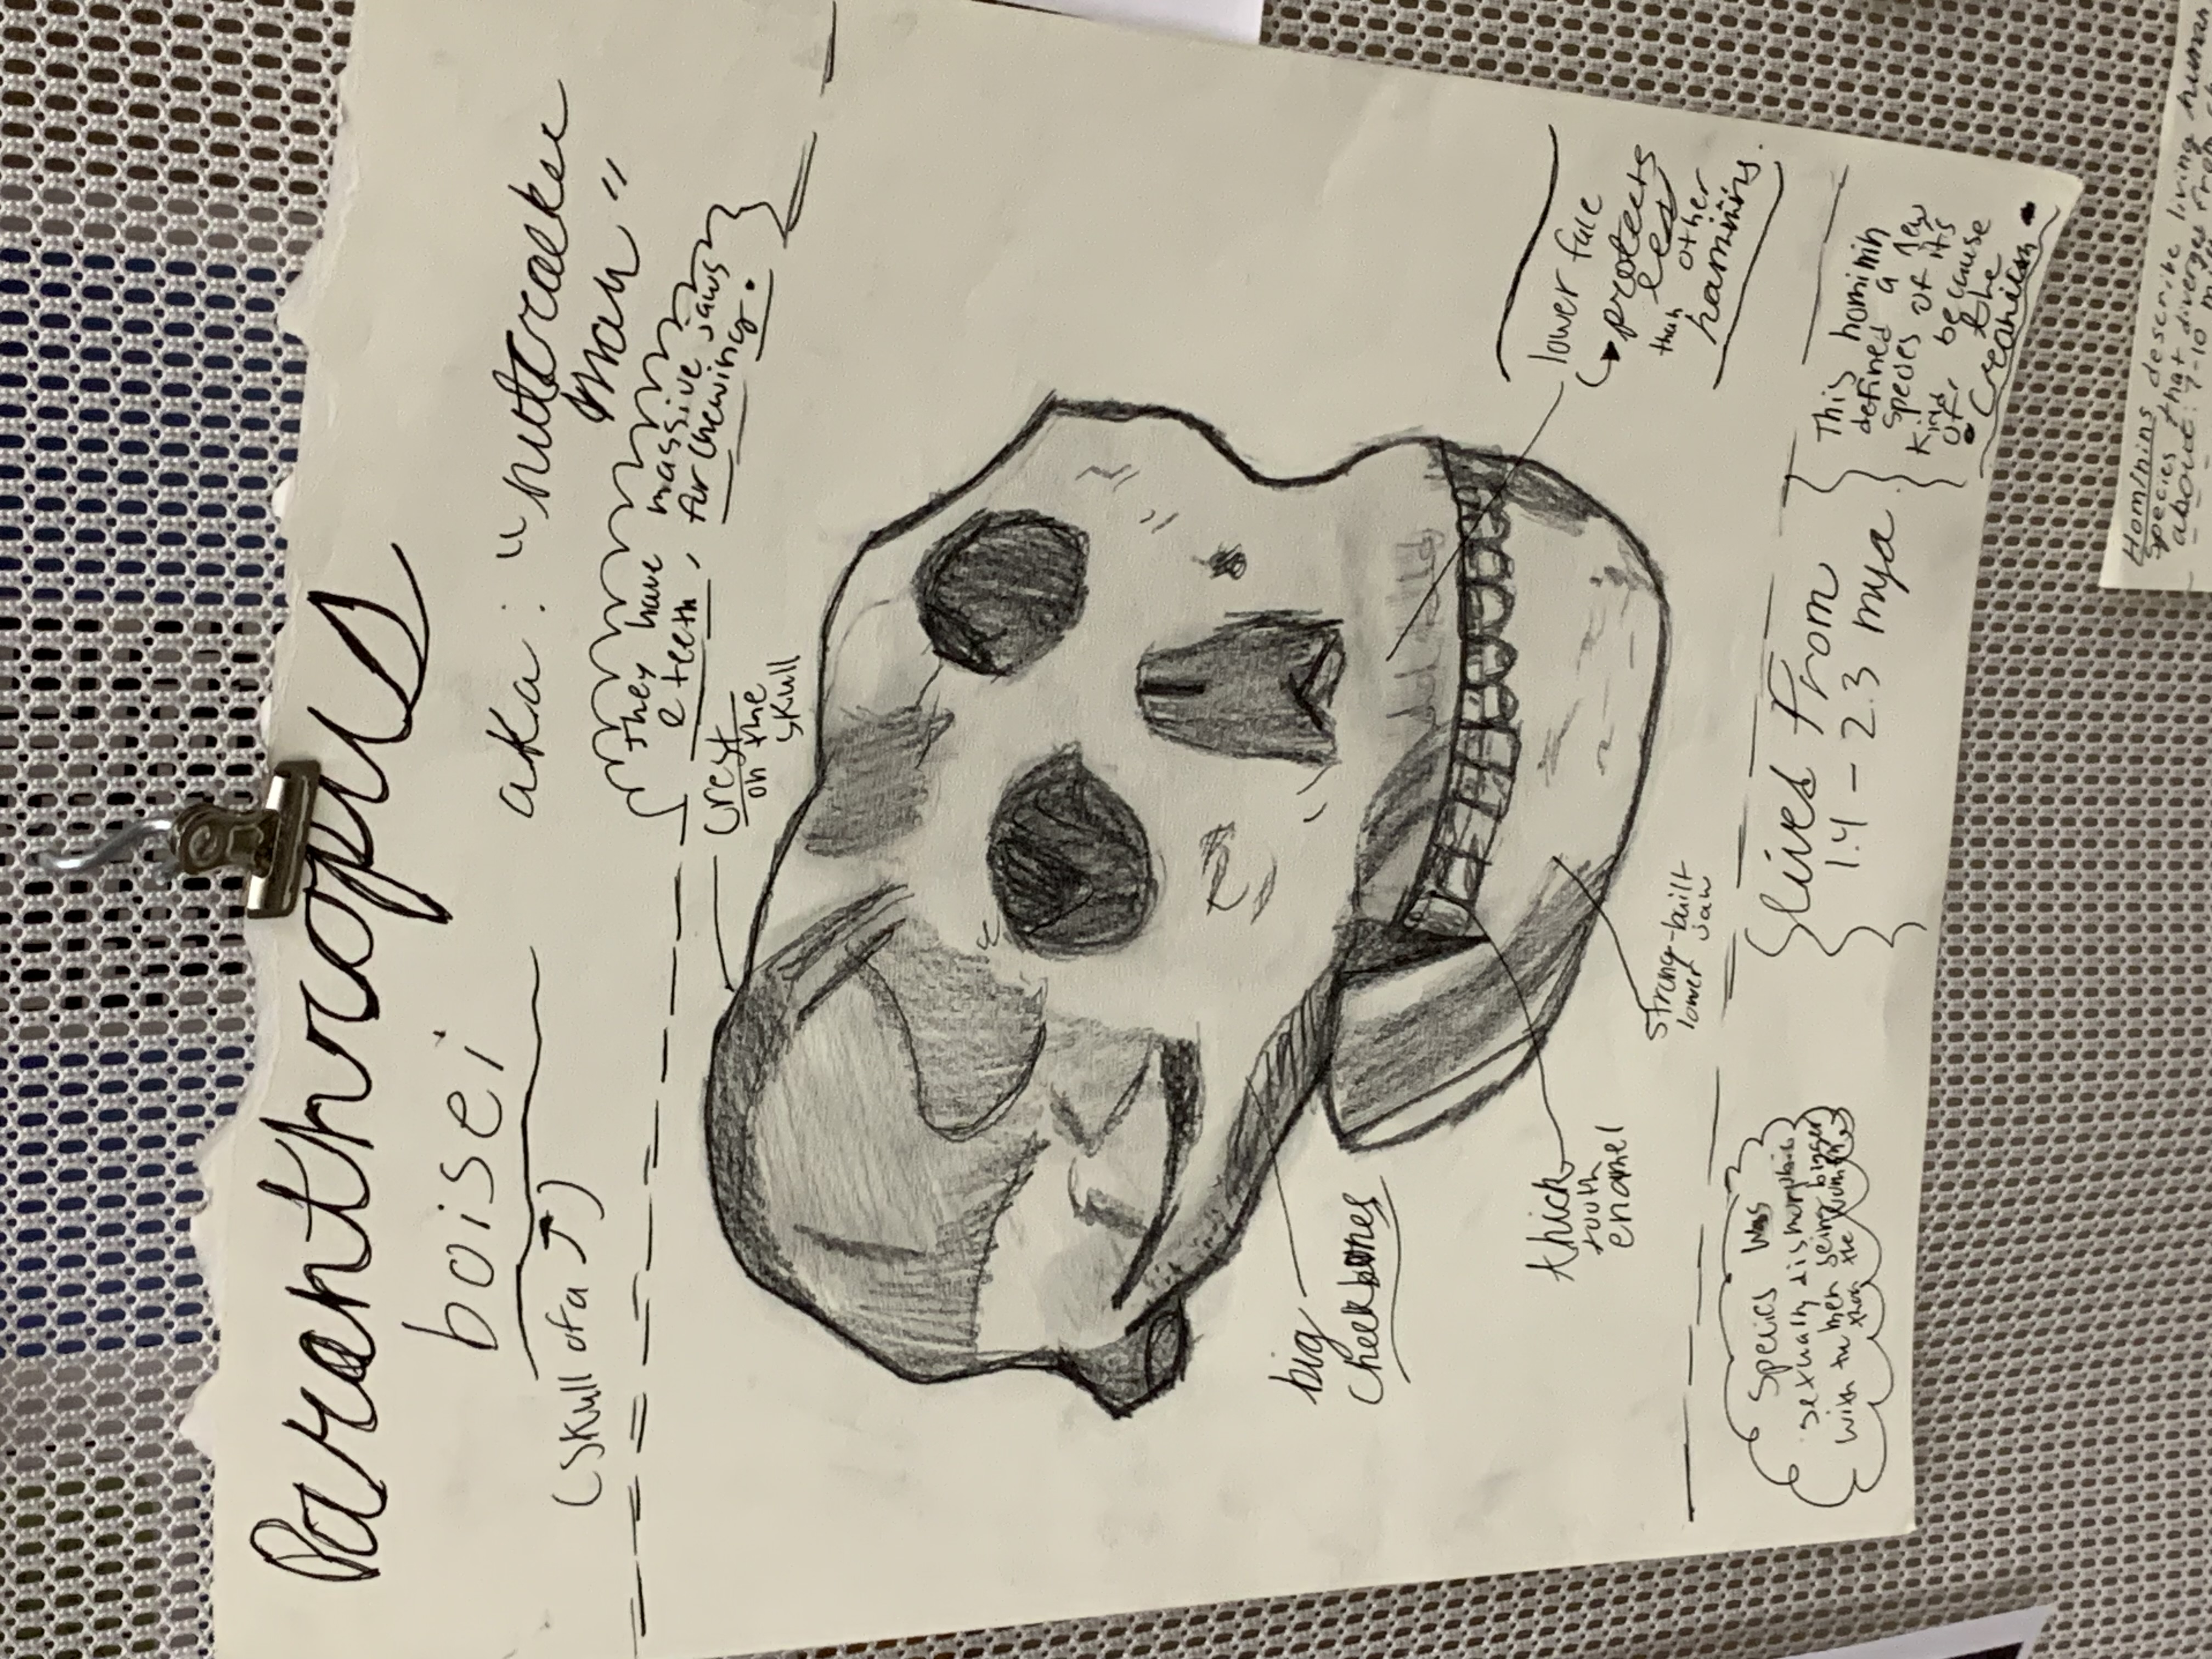 Paranthropus
boisei
(Skull of a ↗)
aka: "nutcracker
Man"
They have massive jaws
& teeth, for chewing.
Crest
on the
skull
big
Cheekbones
thick
tooth
enamel
strong-built
lower jaw
lower face
↳ protects
less
than other
haminins.
Species was
sexually dismorphic
with the men being bigger
than the women
lived From
1.4 - 2.3 mya
This hominin
defined a new
species of it's
kind, because
of the
• Creanium •
Hominins describe living human
species that diverged from
about 7-10